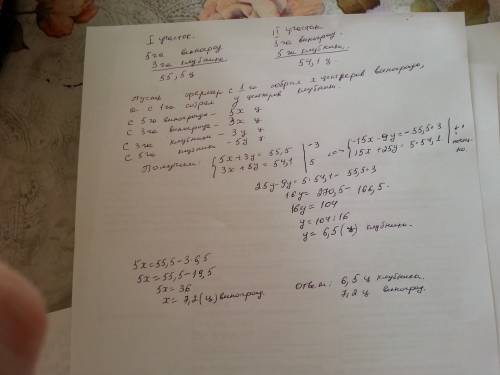 I участок.
II участок
5 га виноград
3 га виноград.
3 га клубника
5 га клубника.
55,5 ц
54,1 ц.
Пусть фермер с 1 га собрал x центнеров винограда,
а с 1 га собрал y центнеров клубники.
С 5 га винограда - 5x ц
С 3 га винограда - 3x ц
С 3 га клубники - 3y ц
С 5 га клубники - 5y ц
Получим: { 5x+3y = 55,5 | ·3
3x+5y = 54,1 | 5
{ -15x-9y = -55,5·3
15x+25y = 5·54,1
25y-9y = 5·54,1 - 55,5·3
16y = 270,5 - 166,5
16y = 104
y = 104:16
y = 6,5 (ц) клубника.
5x = 55,5 - 3·6,5
5x = 55,5 - 19,5
5x = 36
x = 7,2 (ц) виноград.
Ответ: 6,5 ц клубника.
7,2 ц виноград.